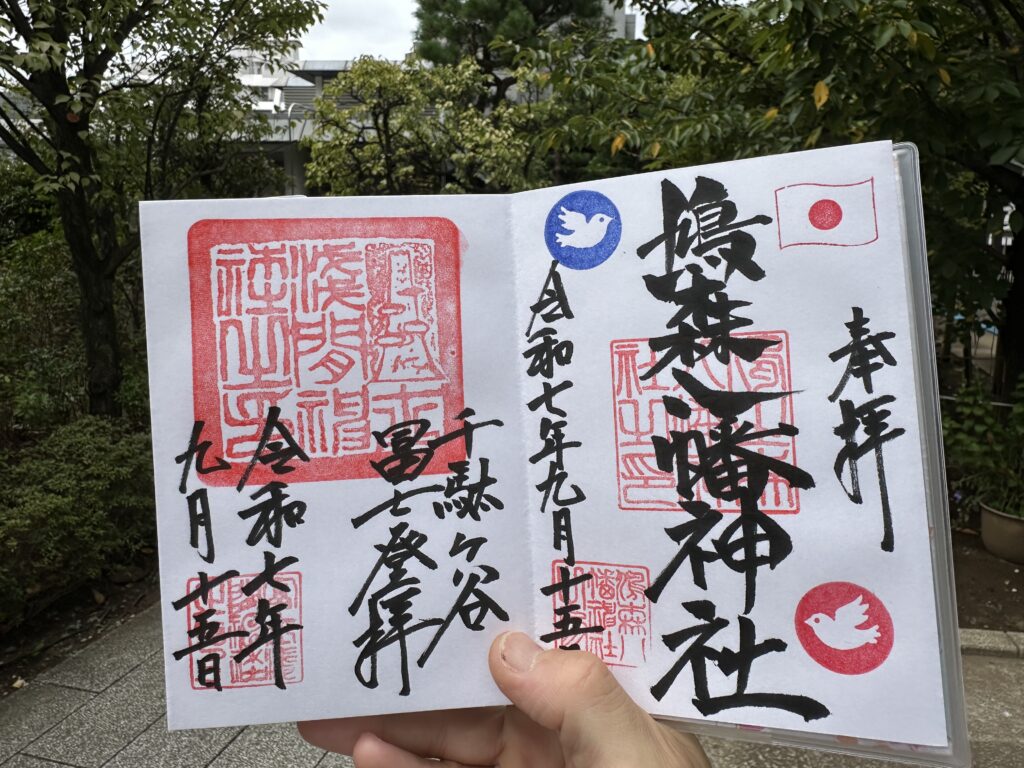 奉拝
鳩森八幡神社
令和七年九月十五
千駄ヶ谷
冨士登拝
令和七年
九月十五日
浅間神
社之印